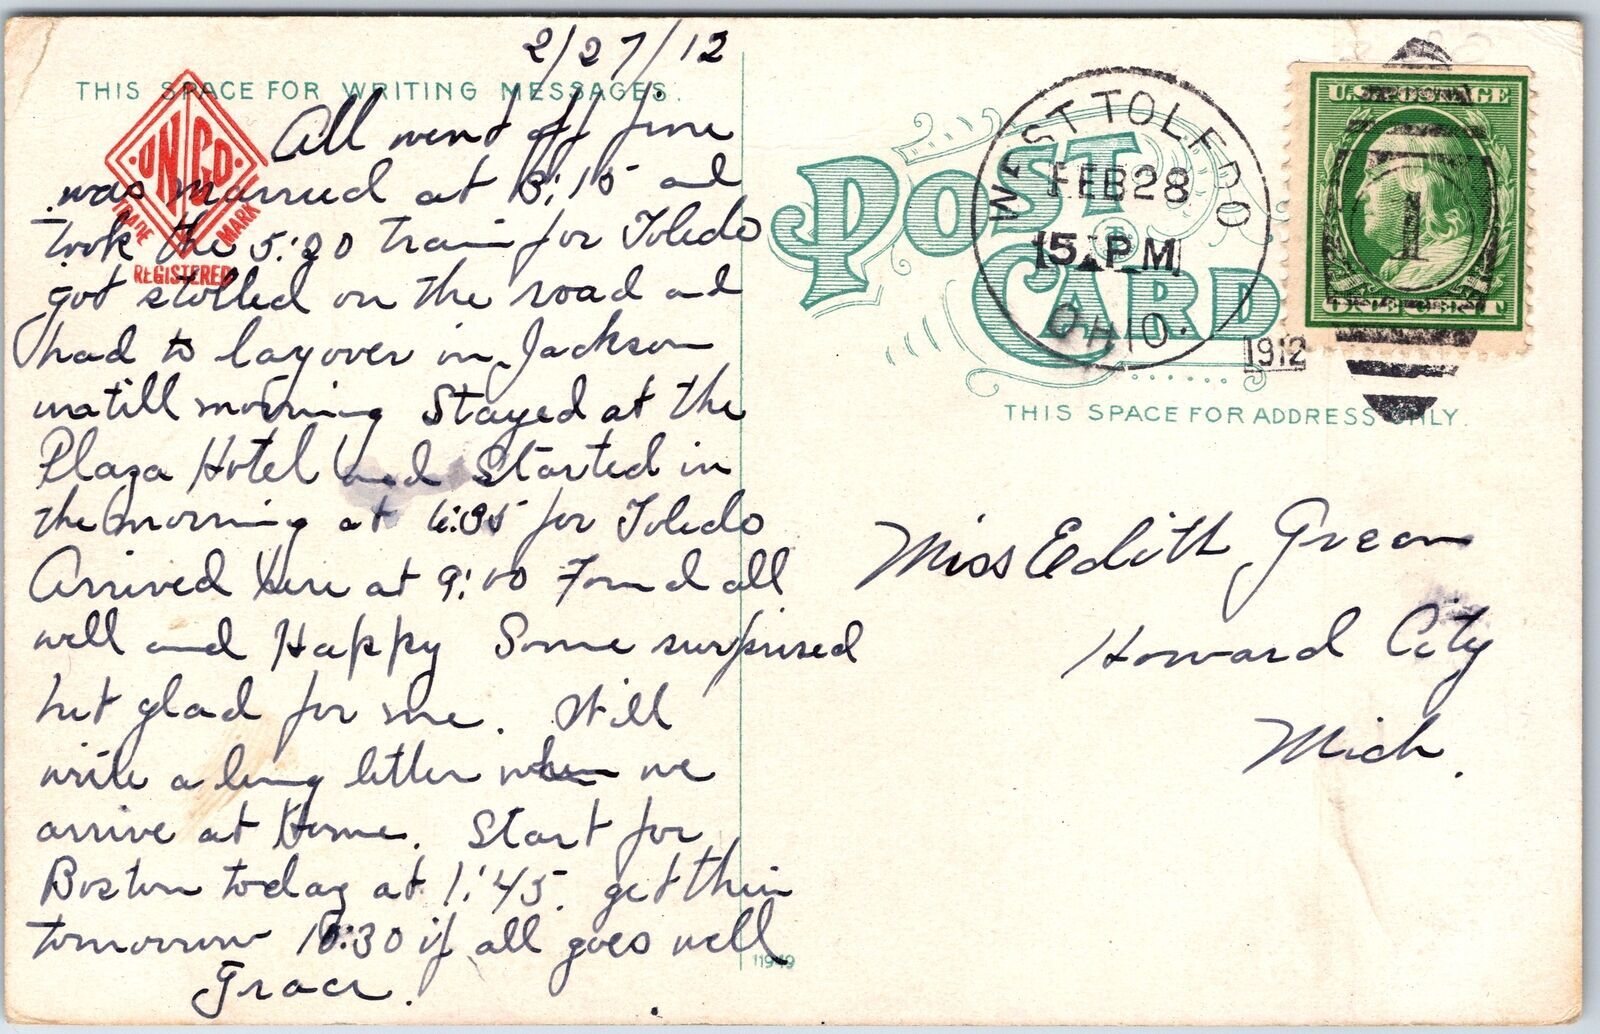 2/27/12
THIS SPACE FOR WRITING MESSAGES.
ONCO
TRADE MARK
REGISTERED
All went off fine
was married at 3:15 and
took the 5:20 train for Toledo
got stalled on the road and
had to layover in Jackson
untill morning Stayed at the
Plaza Hotel and Started in
the morning at 6:35 for Toledo
Arrived here at 9:00 Found all
well and Happy Some surprised
but glad for me. Will
write a long letter when we
arrive at Home. Start for
Boston today at 1:45. get their
tomorrow 10:30 if all goes well
Grace.
POST CARD
WEST TOLEDO
FEB 28
5 PM
OHIO.
1912
U.S. POSTAGE
1
ONE CENT
THIS SPACE FOR ADDRESS ONLY.
Miss Edith Green
Howard City
Mich.
11949